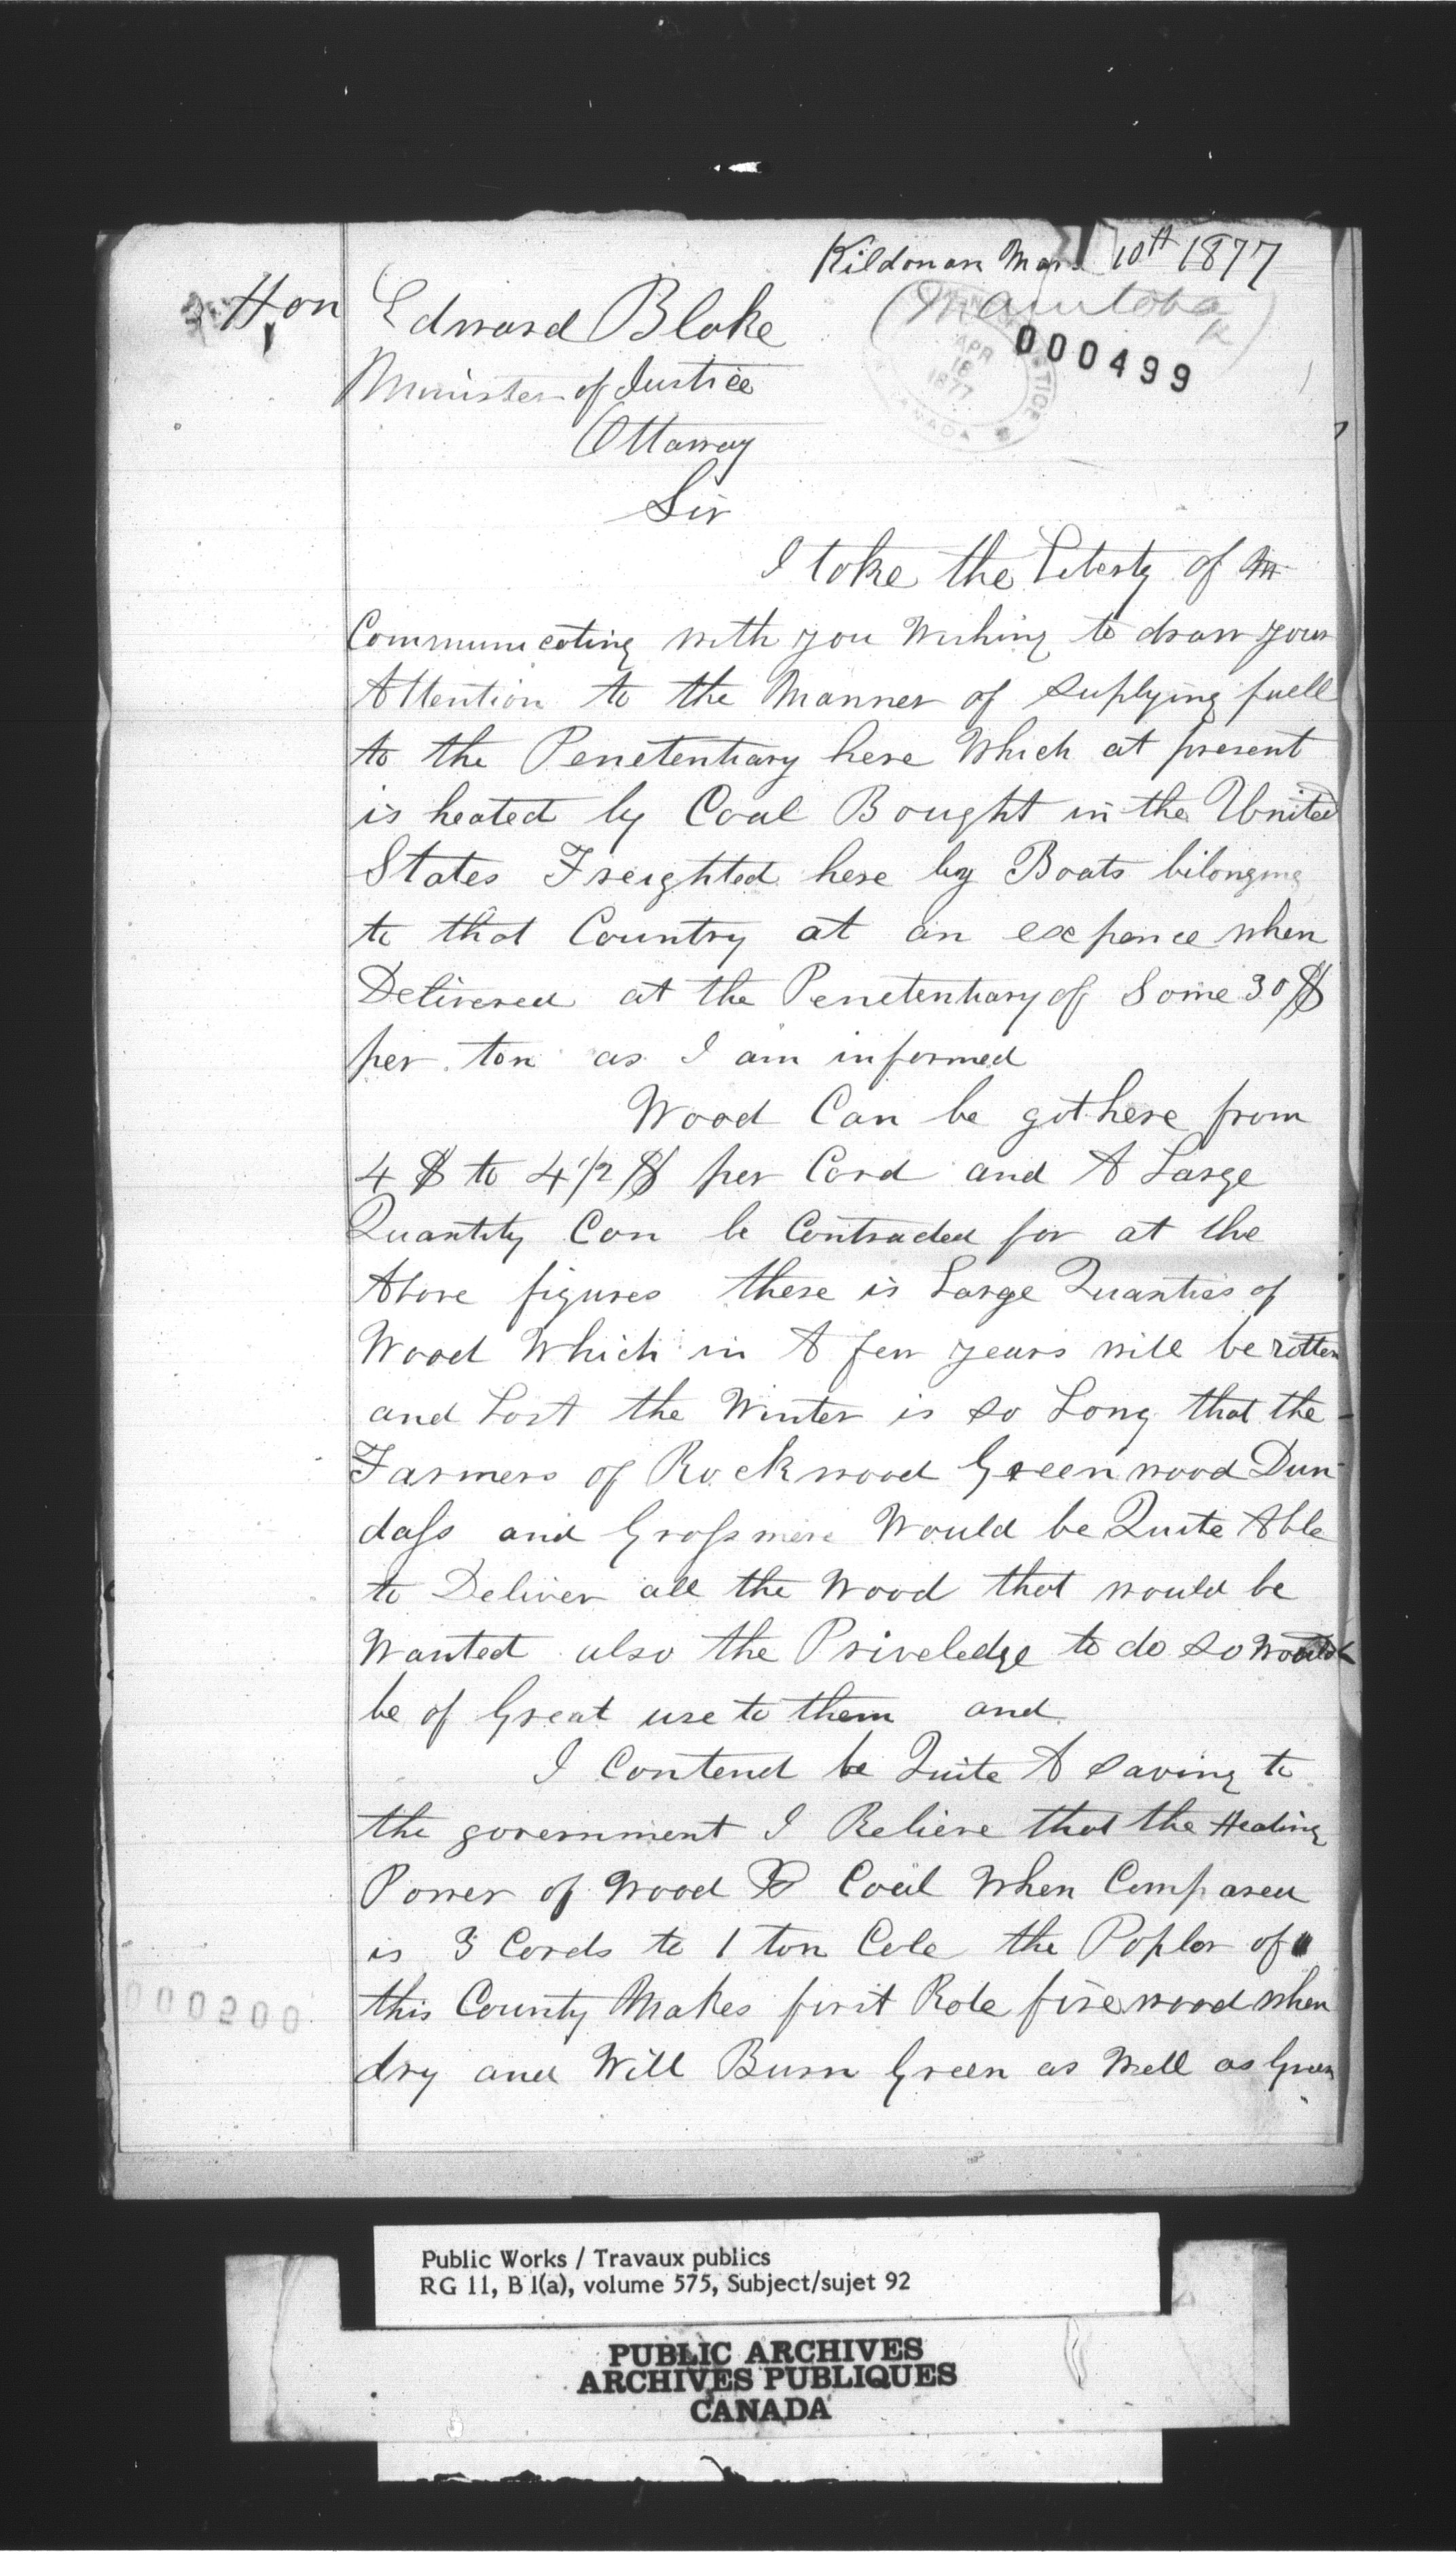 Kildonan Mar. 10th 1877
(Manitoba)
000499
APR
18
1877
CANADA
Hon Edward Blake
Minister of Justice
Ottaway
Sir
I take the Liberty of
Communicating with you Wishing to draw your
Attention to the Manner of suplying fuell
to the Penetentiary here Which at present
is heated by Coal Bought in the United
States Freighted here by Boats bilonging
to that Country at an expence when
Delivered at the Penetentiary of Some 30 $
per ton as I am informed
Wood Can be got here from
4 $ to 4 1/2 $ per Cord and A Large
Quantity Can be Contracted for at the
Above figures there is Large Quanties of
Wood Which in A few years will be rotten
and Lost the Winter is so Long that the
Farmers of Rockwood Greenwood Dun
dass and Grossmere Would be Quite Able
to Deliver all the Wood that would be
Wanted also the Priveledge to do so would
be of Great use to them and
I Contend be Quite A saving to
the government I Believe that the Heating
Power of Wood & Coal When Compared
is 3 Cords to 1 ton Cole the Poplar of
this County Makes first Rate fire wood when
dry and Will Burn Green as Well as Green
000200
Public Works / Travaux publics
RG 11, B 1(a), volume 575, Subject/sujet 92
PUBLIC ARCHIVES
ARCHIVES PUBLIQUES
CANADA